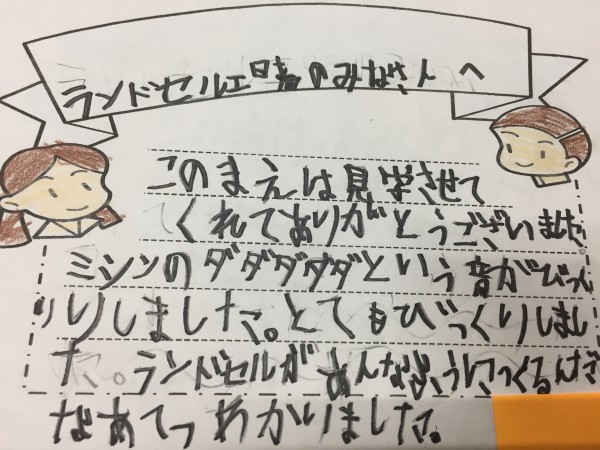 ランドセル工場のみなさん へ
このまえは見学させて
くれてありがとうございました
ミシンのダダダダダという音がびっく
りしました。とてもびっくりしまし
た。ランドセルがあんなふうにつくるんだ
なあてっわかりました。